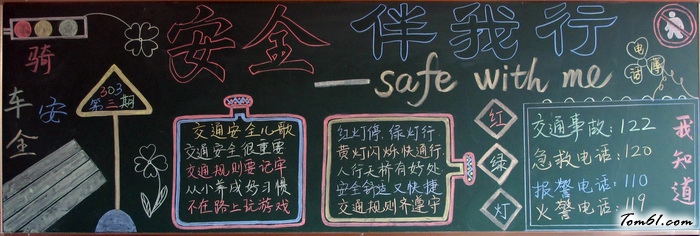 安全伴我行
—safe with me
骑车安全
303
第三期
交通安全儿歌
交通安全很重要
交通规则要记牢
从小养成好习惯
不在路上玩游戏
红灯停,绿灯行
黄灯闪烁快通行
人行天桥有好处
安全舒适又快捷
交通规则齐遵守
红
绿
灯
电话
交通事故:122
急救电话:120
报警电话:110
火警电话:119
我知道
Tom61.com